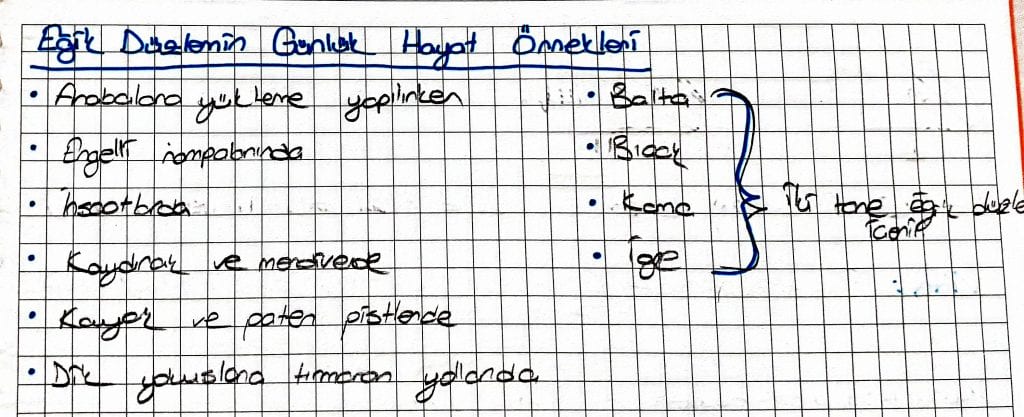 Eğik Düzlemin Günlük Hayat Örnekleri
• Arabalara yükleme yapılırken
• Engelli rampalarında
• İnşaatlarda
• Kaydırak ve merdivende
• Kayak ve paten pistlerinde
• Dik yokuşlara tırmanan yollarda
• Balta
• Bıçak
• Kama
• İğne
İki tane eğik düzle
içerir